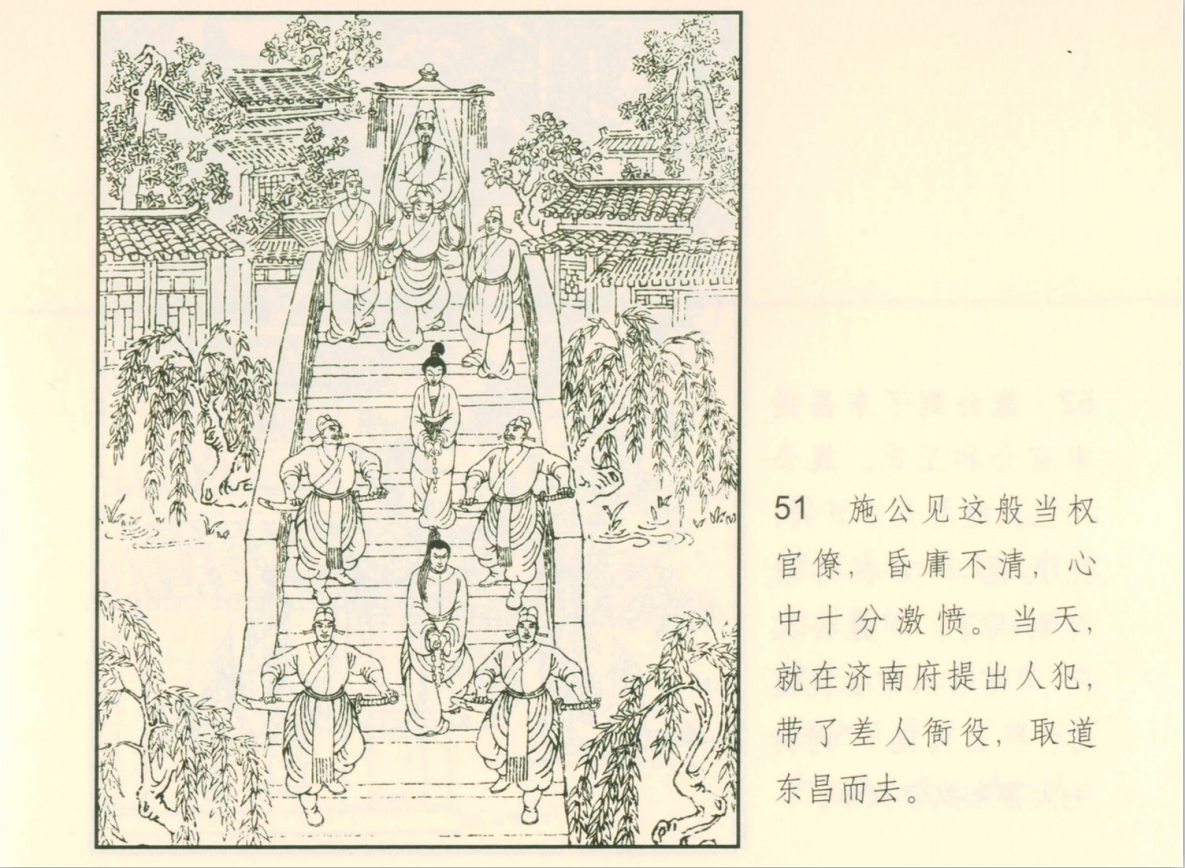 51 施公见这般当权
官僚，昏庸不清，心
中十分激愤。当天，
就在济南府提出人犯，
带了差人衙役，取道
东昌而去。